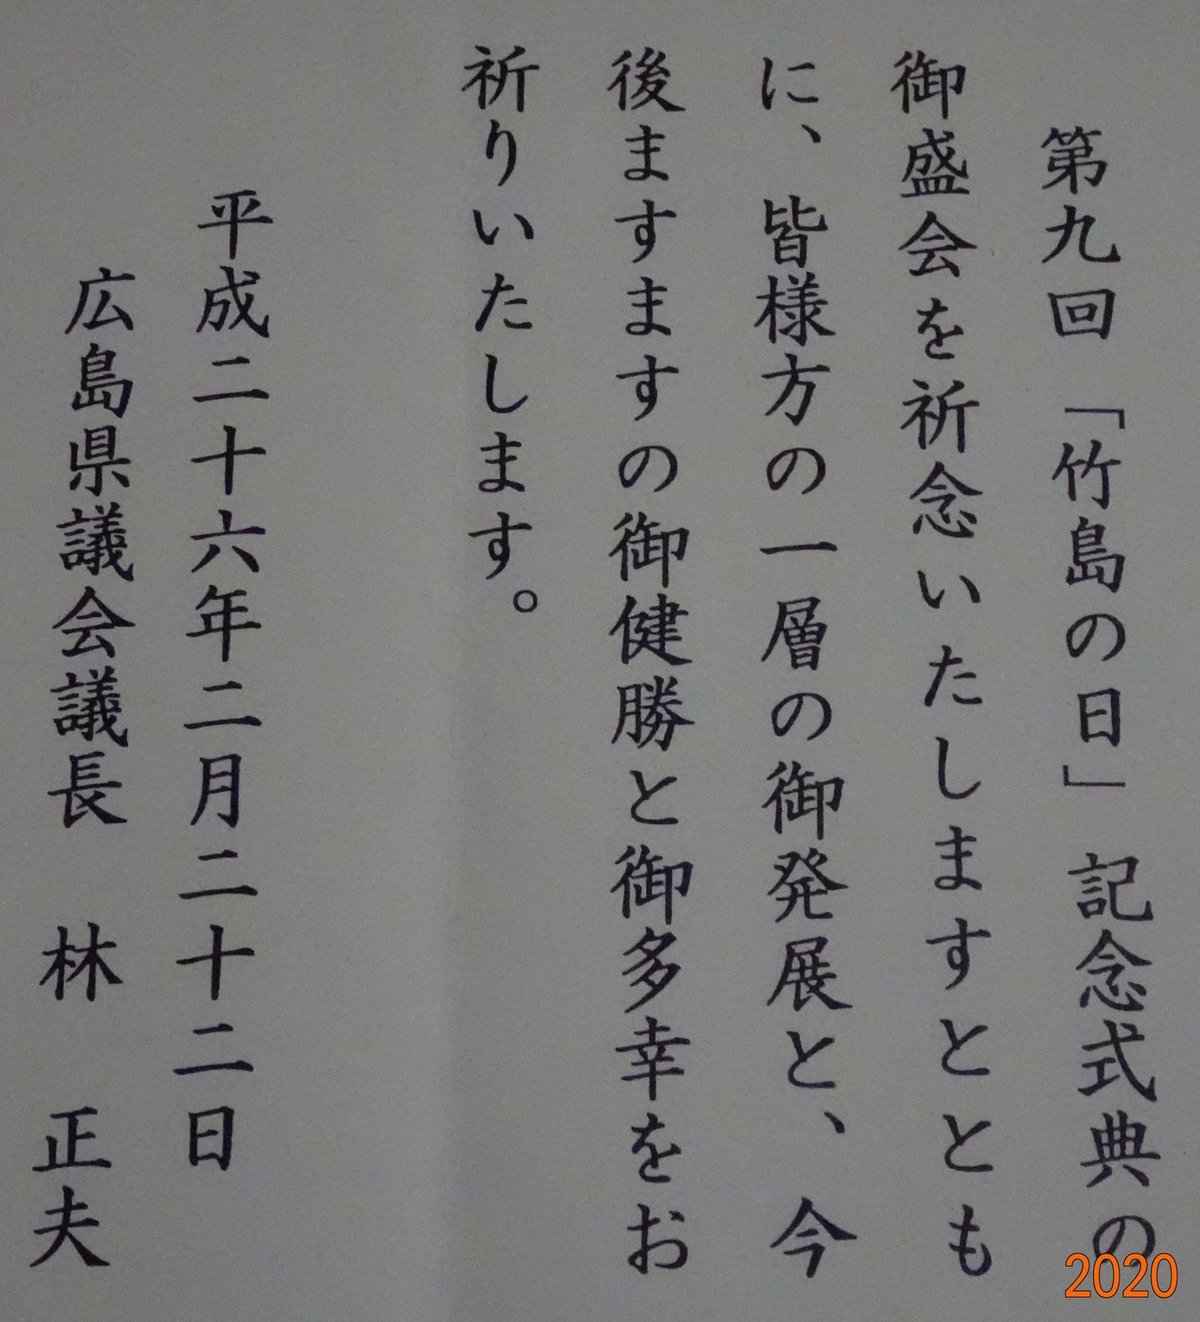 第九回「竹島の日」記念式典の
御盛会を祈念いたしますととも
に、皆様方の一層の御発展と、今
後ますますの御健勝と御多幸をお
祈りいたします。
平成二十六年二月二十二日
広島県議会議長 林 正夫
2020